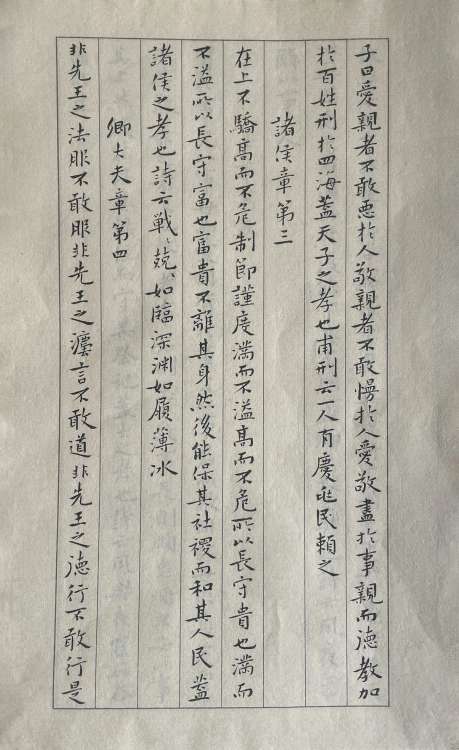 子曰愛親者不敢惡扵人敬親者不敢慢扵人愛敬盡扵事親而德教加
扵百姓刑扵四海蓋天子之孝也甫刑云一人有慶兆民賴之
諸侯章第三
在上不驕高而不危制節謹度滿而不溢高而不危所以長守貴也滿而
不溢所以長守富也富貴不離其身然後能保其社稷而和其人民蓋
諸侯之孝也詩云戰〻兢〻如臨深淵如履薄冰
卿大夫章第四
非先王之法服不敢服非先王之法言不敢道非先王之德行不敢行是